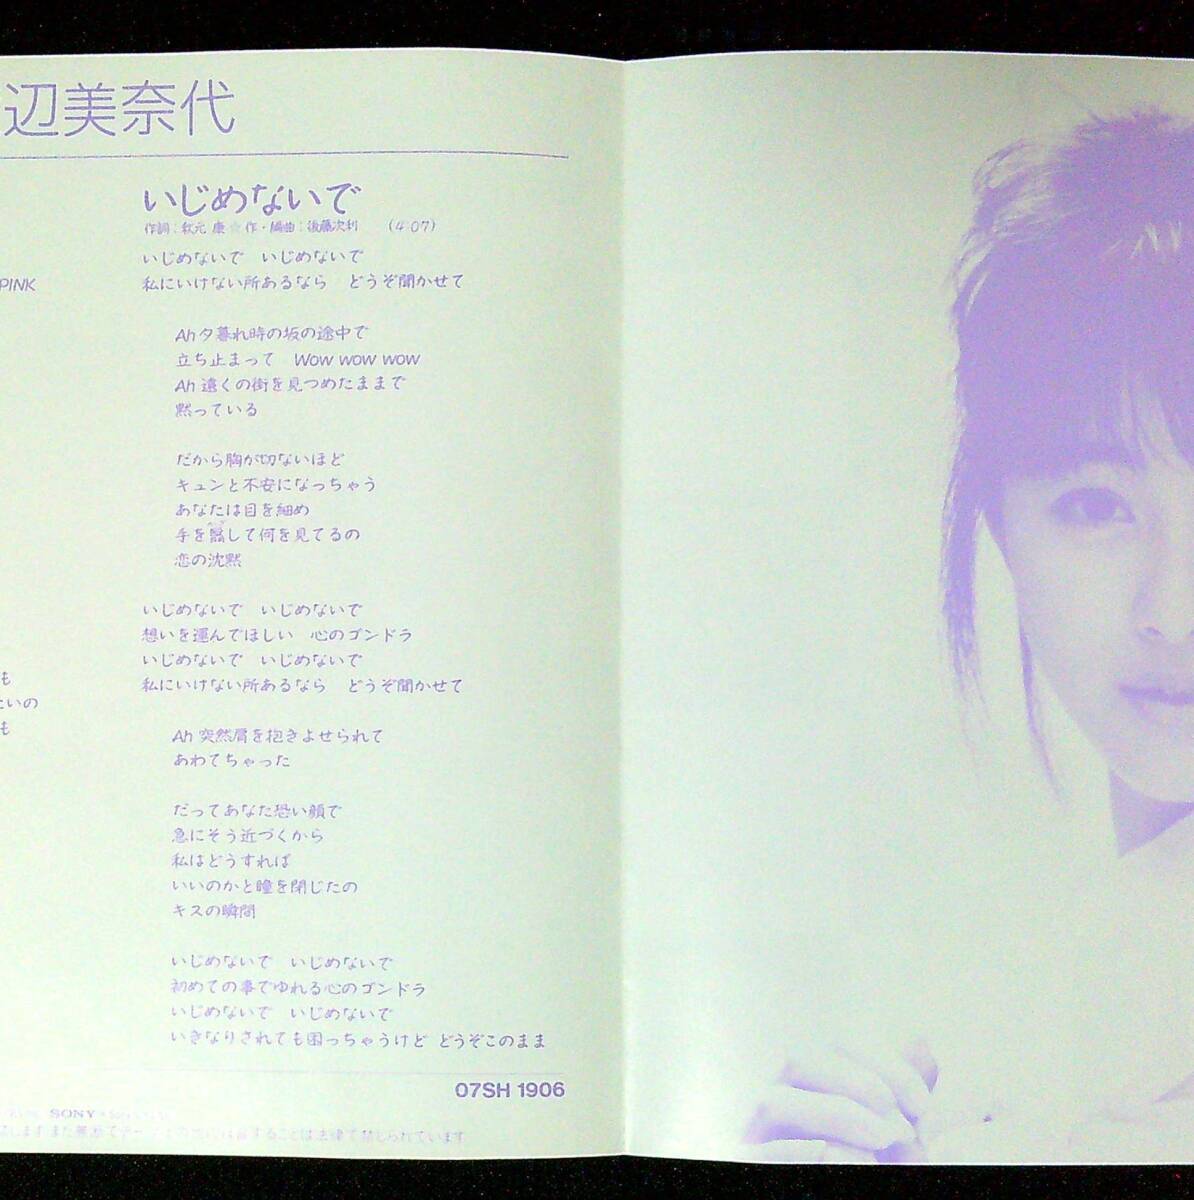 辺美奈代
いじめないで
作詞:秋元 康☆作・編曲:後藤次利 (4:07)
いじめないで いじめないで
私にいけない所あるなら どうぞ聞かせて
Ah 夕暮れ時の坂の途中で
立ち止まって Wow wow wow
Ah 遠くの街を見つめたままで
黙っている
だから胸が切ないほど
キュンと不安になっちゃう
あなたは目を細め
手を翳して何を見てるの
恋の沈黙
いじめないで いじめないで
想いを運んでほしい 心のゴンドラ
いじめないで いじめないで
私にいけない所あるなら どうぞ聞かせて
Ah 突然肩を抱きよせられて
あわてちゃった
だってあなた恐い顔で
急にそう近づくから
私はどうすれば
いいのかと瞳を閉じたの
キスの瞬間
いじめないで いじめないで
初めての事でゆれる心のゴンドラ
いじめないで いじめないで
いきなりされても困っちゃうけど どうぞこのまま
PINK
も
たいの
も
07SH 1906
SONY
ることは法律で禁じられています